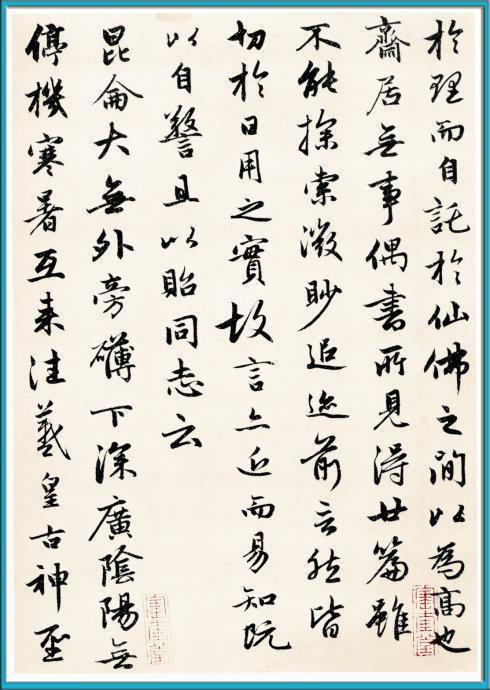 於理而自託於仙佛之間以為高也
齋居無事偶書所見得廿篇雖
不能探索微眇追迹前言然皆
切於日用之實故言亦近而易知既
以自警且以貽同志云
昆侖大無外旁礴下深廣陰陽無
停機寒暑互來往羲皇古神聖